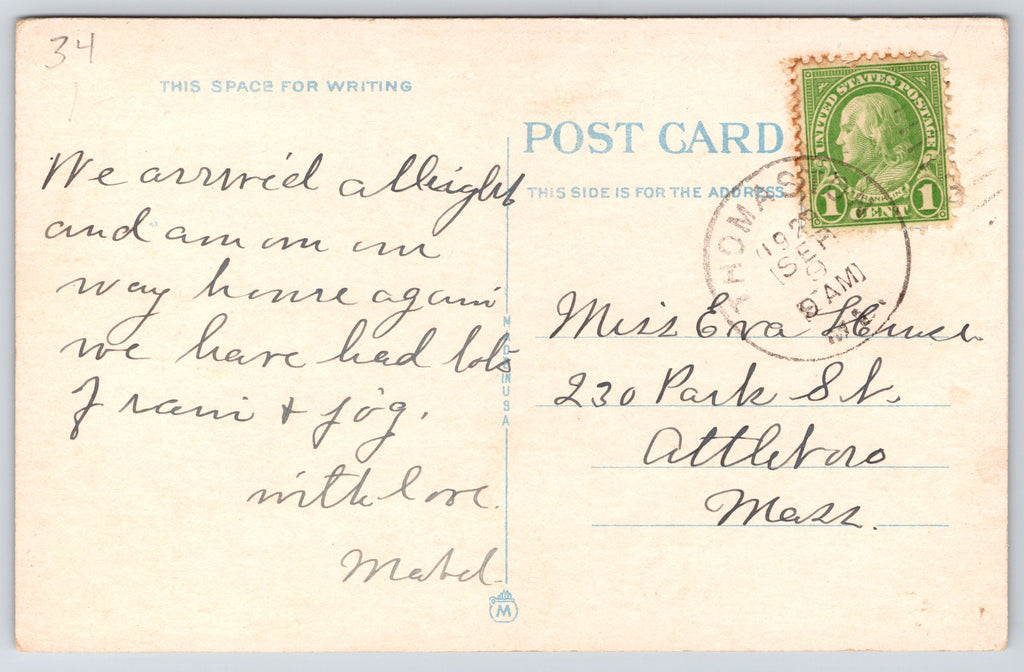 34
THIS SPACE FOR WRITING
We arrived allright
and am on our
way home again
we have had lots
of rain & fog.
with love.
Mabel
MADE IN USA
M
POST CARD
THIS SIDE IS FOR THE ADDRESS
UNITED STATES POSTAGE
FRANKLIN
1 CENT 1
THOMAS
SEP
AM
Miss Eva
230 Park St.
Attleboro
Mass.